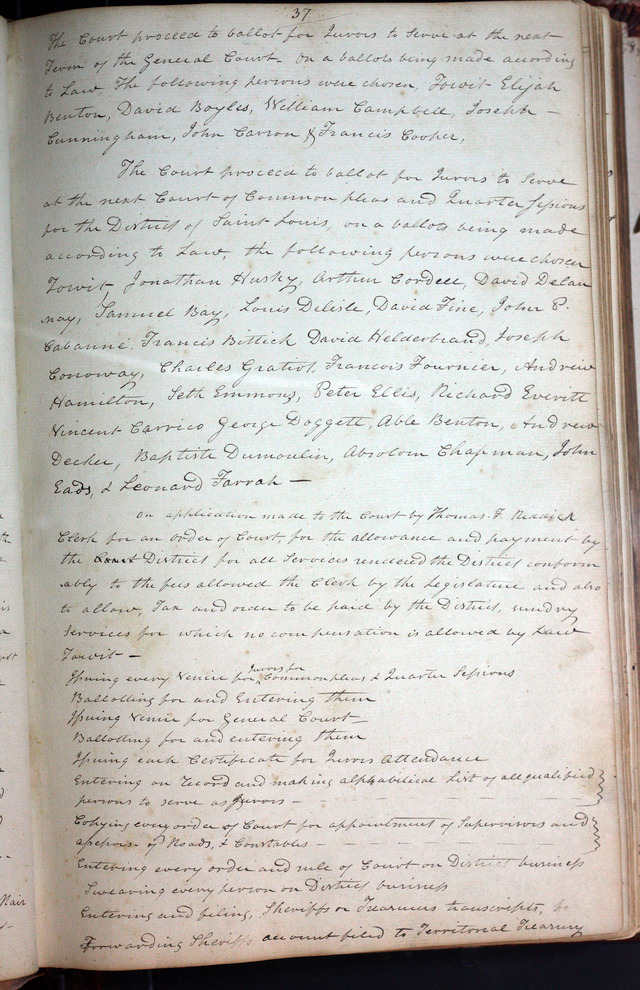 37
The Court proceed to ballot for Jurors to Serve at the next
Term of the General Court. on a ballots being made according
to Law, The following persons were chosen, Towit Elijah
Benton, David Boyles, William Campbell, Joseph -
Cunningham, John Carron & Francis Cooper,
The Court proceed to ballot for Jurors to Serve
at the next Court of Common pleas and Quarter sessions
for the District of Saint Louis, on a ballots being made
according to Law, the following persons were chosen
Towit Jonathan Husky, Arthur Cordell, David Delau
nay, Samuel Bay, Louis Delisle, David Fine, John P.
Cabanné, Francis Bittick David Helderbrand, Joseph
Conoway, Charles Gratiot, Francois Fournier, Andrew
Hamilton, Seth Emmons, Peter Ellis, Richard Everitt
Vincent Carrico George Doggett, Able Benton, Andrew
Decker, Baptiste Dumoulin, Absolom Chapman, John
Eads, & Leonard Farrah —
On application made to the Court by Thomas F. Riddick
Clerk for an order of Court for the allowance and payment by
the Court District for all Services rendered the District conform
ably to the fees allowed the Clerk by the Legislature and also
to allow, Tax and order to be paid by the District, sundry
Services for which no compensation is allowed by Law
Towit —
Issuing every Venire for Jurors for Common pleas & Quarter Sessions
Ballotting for and Entering them
Issuing Venire for General Court —
Ballotting for and entering them
Issuing each Certificate for Jurors attendance
Entering on record and making alphabitical List of all qualified
persons to serve as Jurors —
Copying every order of Court for appointment of Supervisors and
of Roads, & Constables —
Entering every order and rule of Court on District business
Swearing every person on District business
Entering and filing, Sheriffs or Treasurers transcripts,
Forwarding Sheriffs account filed to Territorial Treasury
Nair